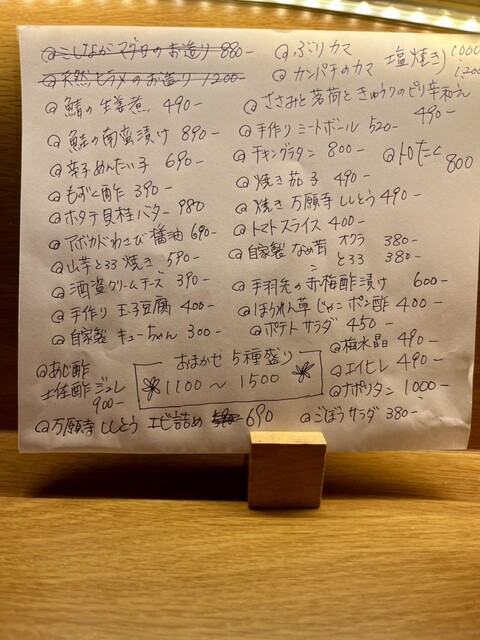 こしなが マグロのお造り 880-
天然ヒラメのお造り 1200-
鯖の生姜煮 490-
鮭の南蛮漬け 890-
辛子めんたい子 690-
もずく酢 390-
ホタテ貝柱バター 980
アボカドわさび醤油 690-
山芋とろろ焼き 590-
酒盗クリームチーズ 390-
手作り玉子豆腐 400-
自家製 キューちゃん 300-
あじ酢
土佐酢ジュレ
900-
万願寺ししとう エビ詰め 690
おまかせ 5種盛り
1100〜1500
ぶりカマ
カンパチのカマ
塩焼き) 1000
1200
ささみと茗荷ときゅうりのピリ辛和え
490-
手作りミートボール 520-
チキングラタン 800-
トロたく
800
焼き茄子 490-
焼き万願寺ししとう 490-
トマトスライス 400-
自家製 なめ茸 オクラ 380-
〃 とろろ 380-
手羽先の赤梅酢漬け 600-
ほうれん草じゃこポン酢 400-
ポテトサラダ 450-
梅水晶 490-
エイヒレ 490-
ナポリタン 1000-
ごぼうサラダ 380-